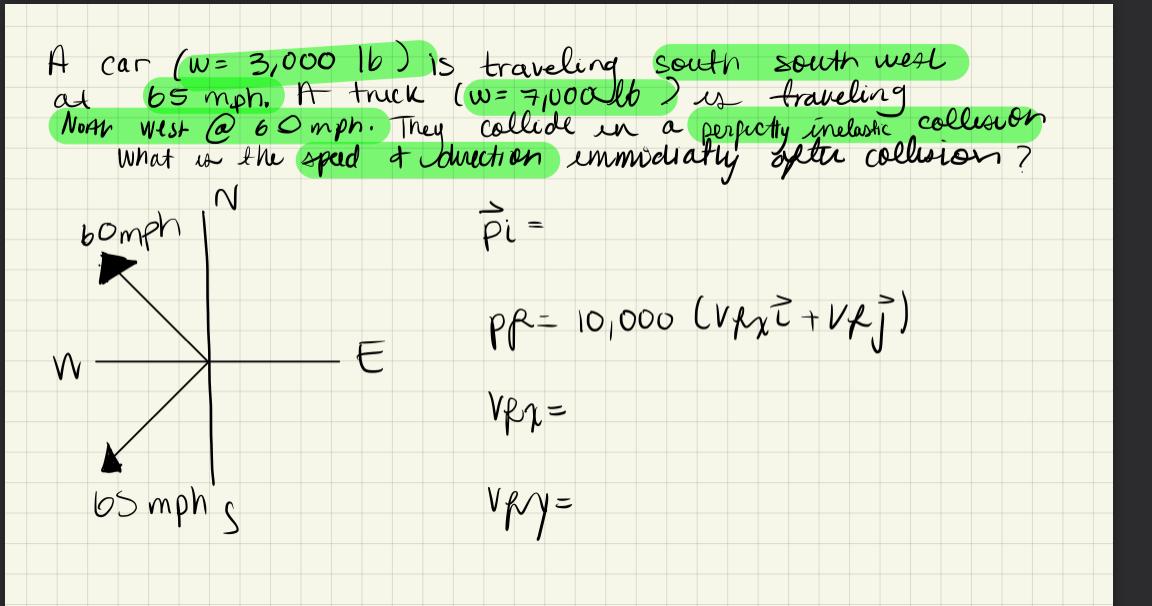 A car (w= 3,000 lb) is traveling south south west
at 65 mph. A truck (w= 7,000 lb) is traveling
North west @ 60 mph. They collide in a perfectly inelastic collision
What is the speed & direction immidiatly after collision?
N
60mph
W
E
65 mph
S
p⃗i =
pf= 10,000 (vfx i⃗ + vf j⃗)
vfx=
vfy=